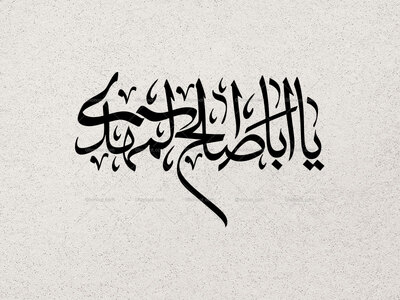 یا اباصالح المهدی